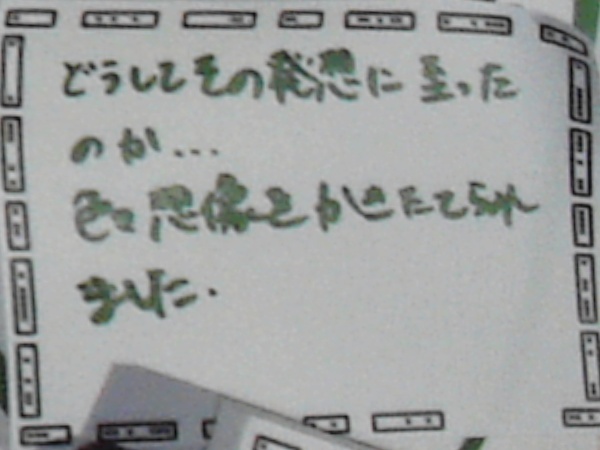 どうしてその発想に至った
のか...
色々想像をかきたてられ
ました.